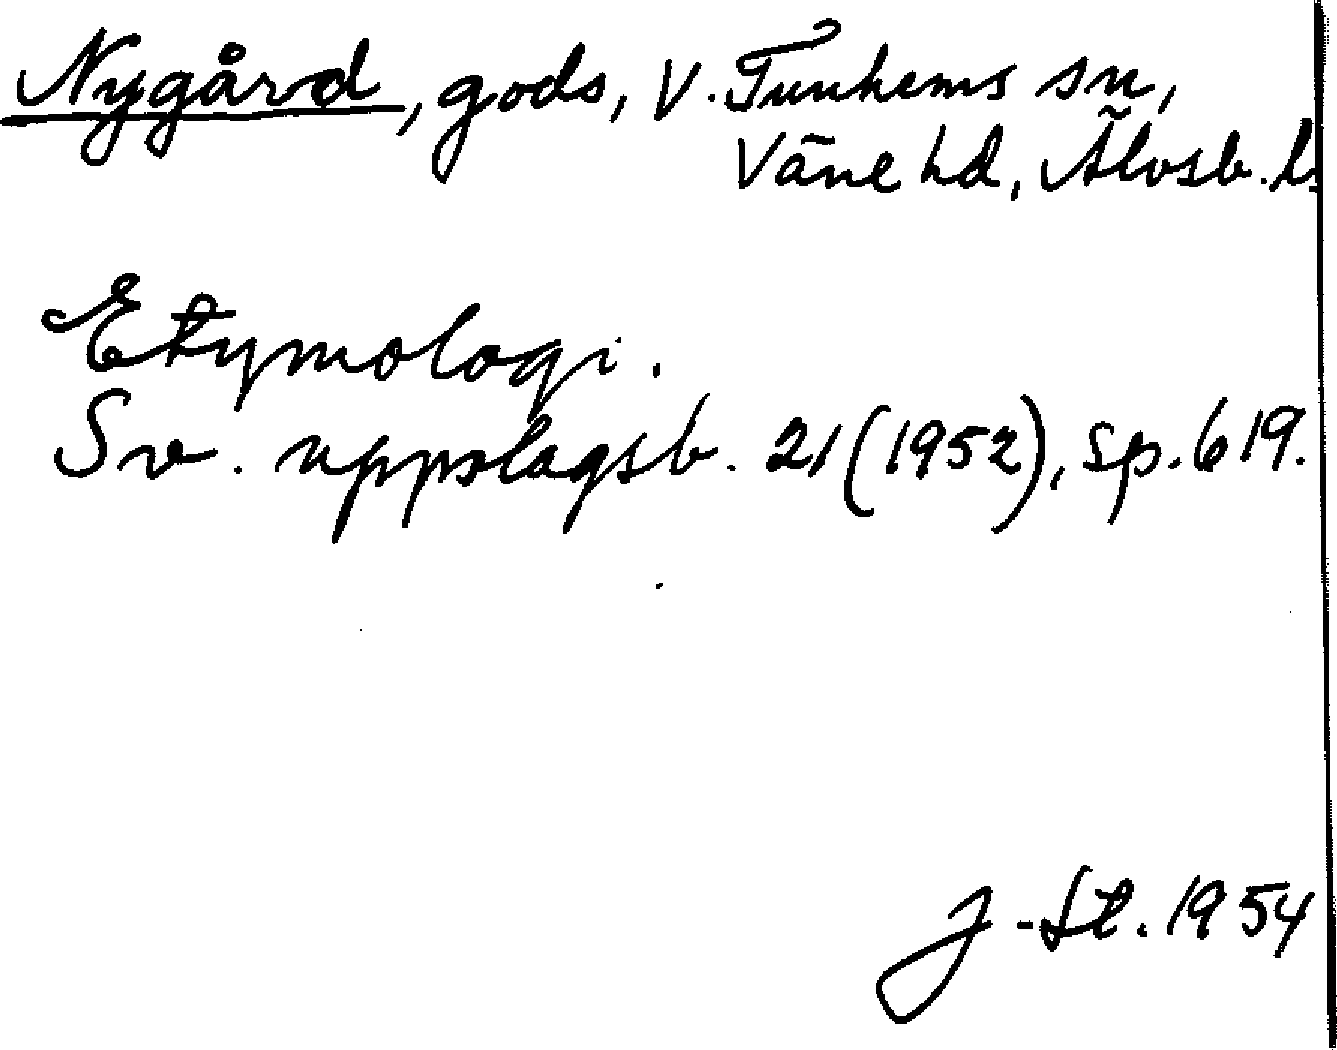 Nygård, gods, V. Tunhems sn,
Väne hd, Älvsb. l.
Etymologi.
Sv. uppslagsb. 21 (1952), sp. 619.
J-St. 1954